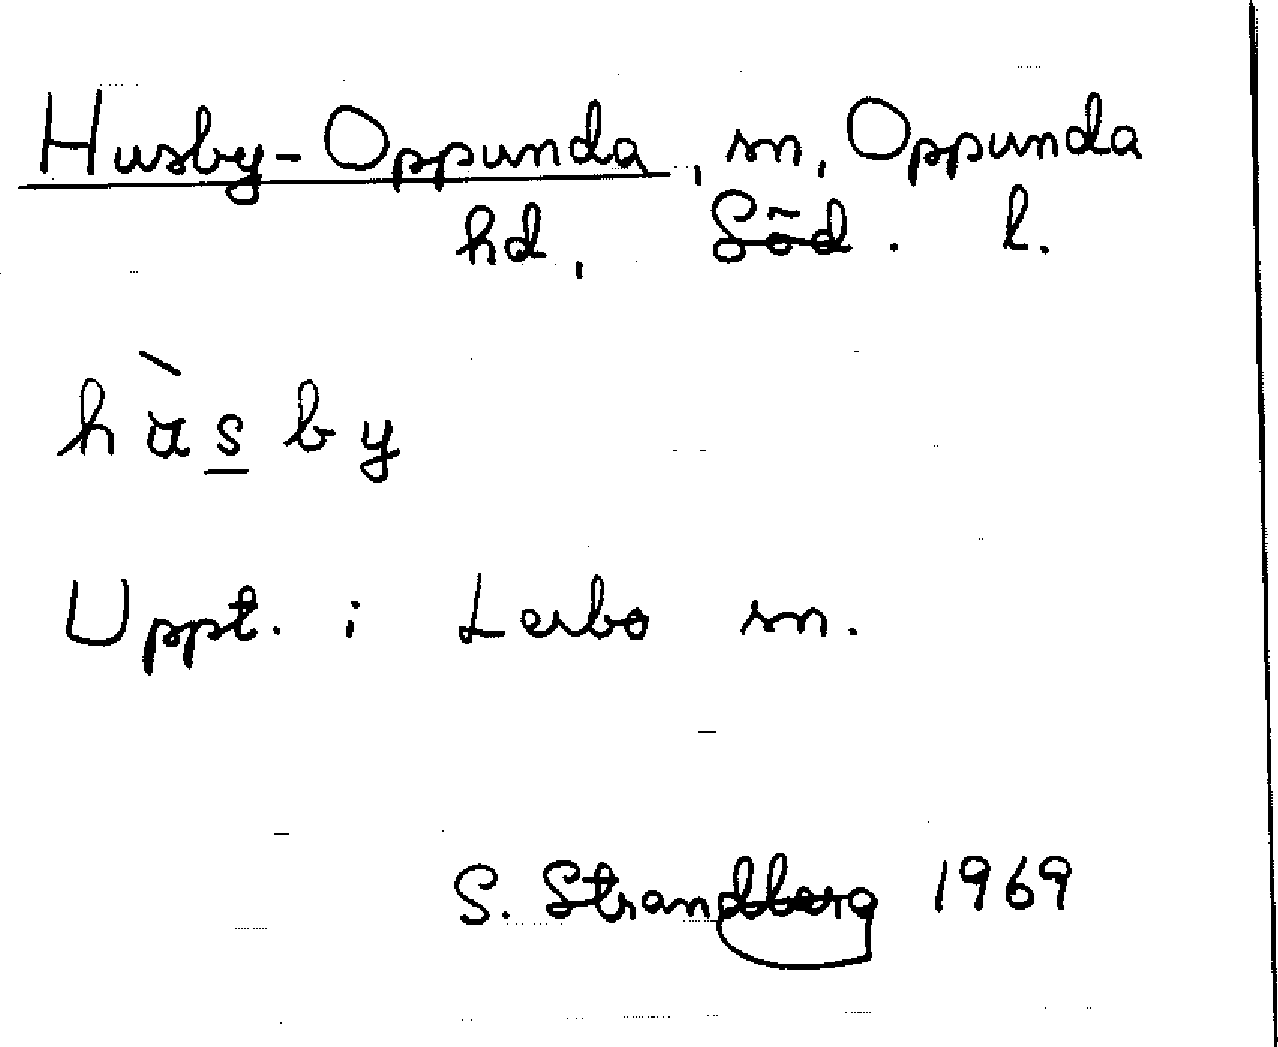 Husby-Oppunda, sn, Oppunda
hd, Söd. l.
hùsby
Uppt. i Lerbo sn.
S. Strandberg 1969